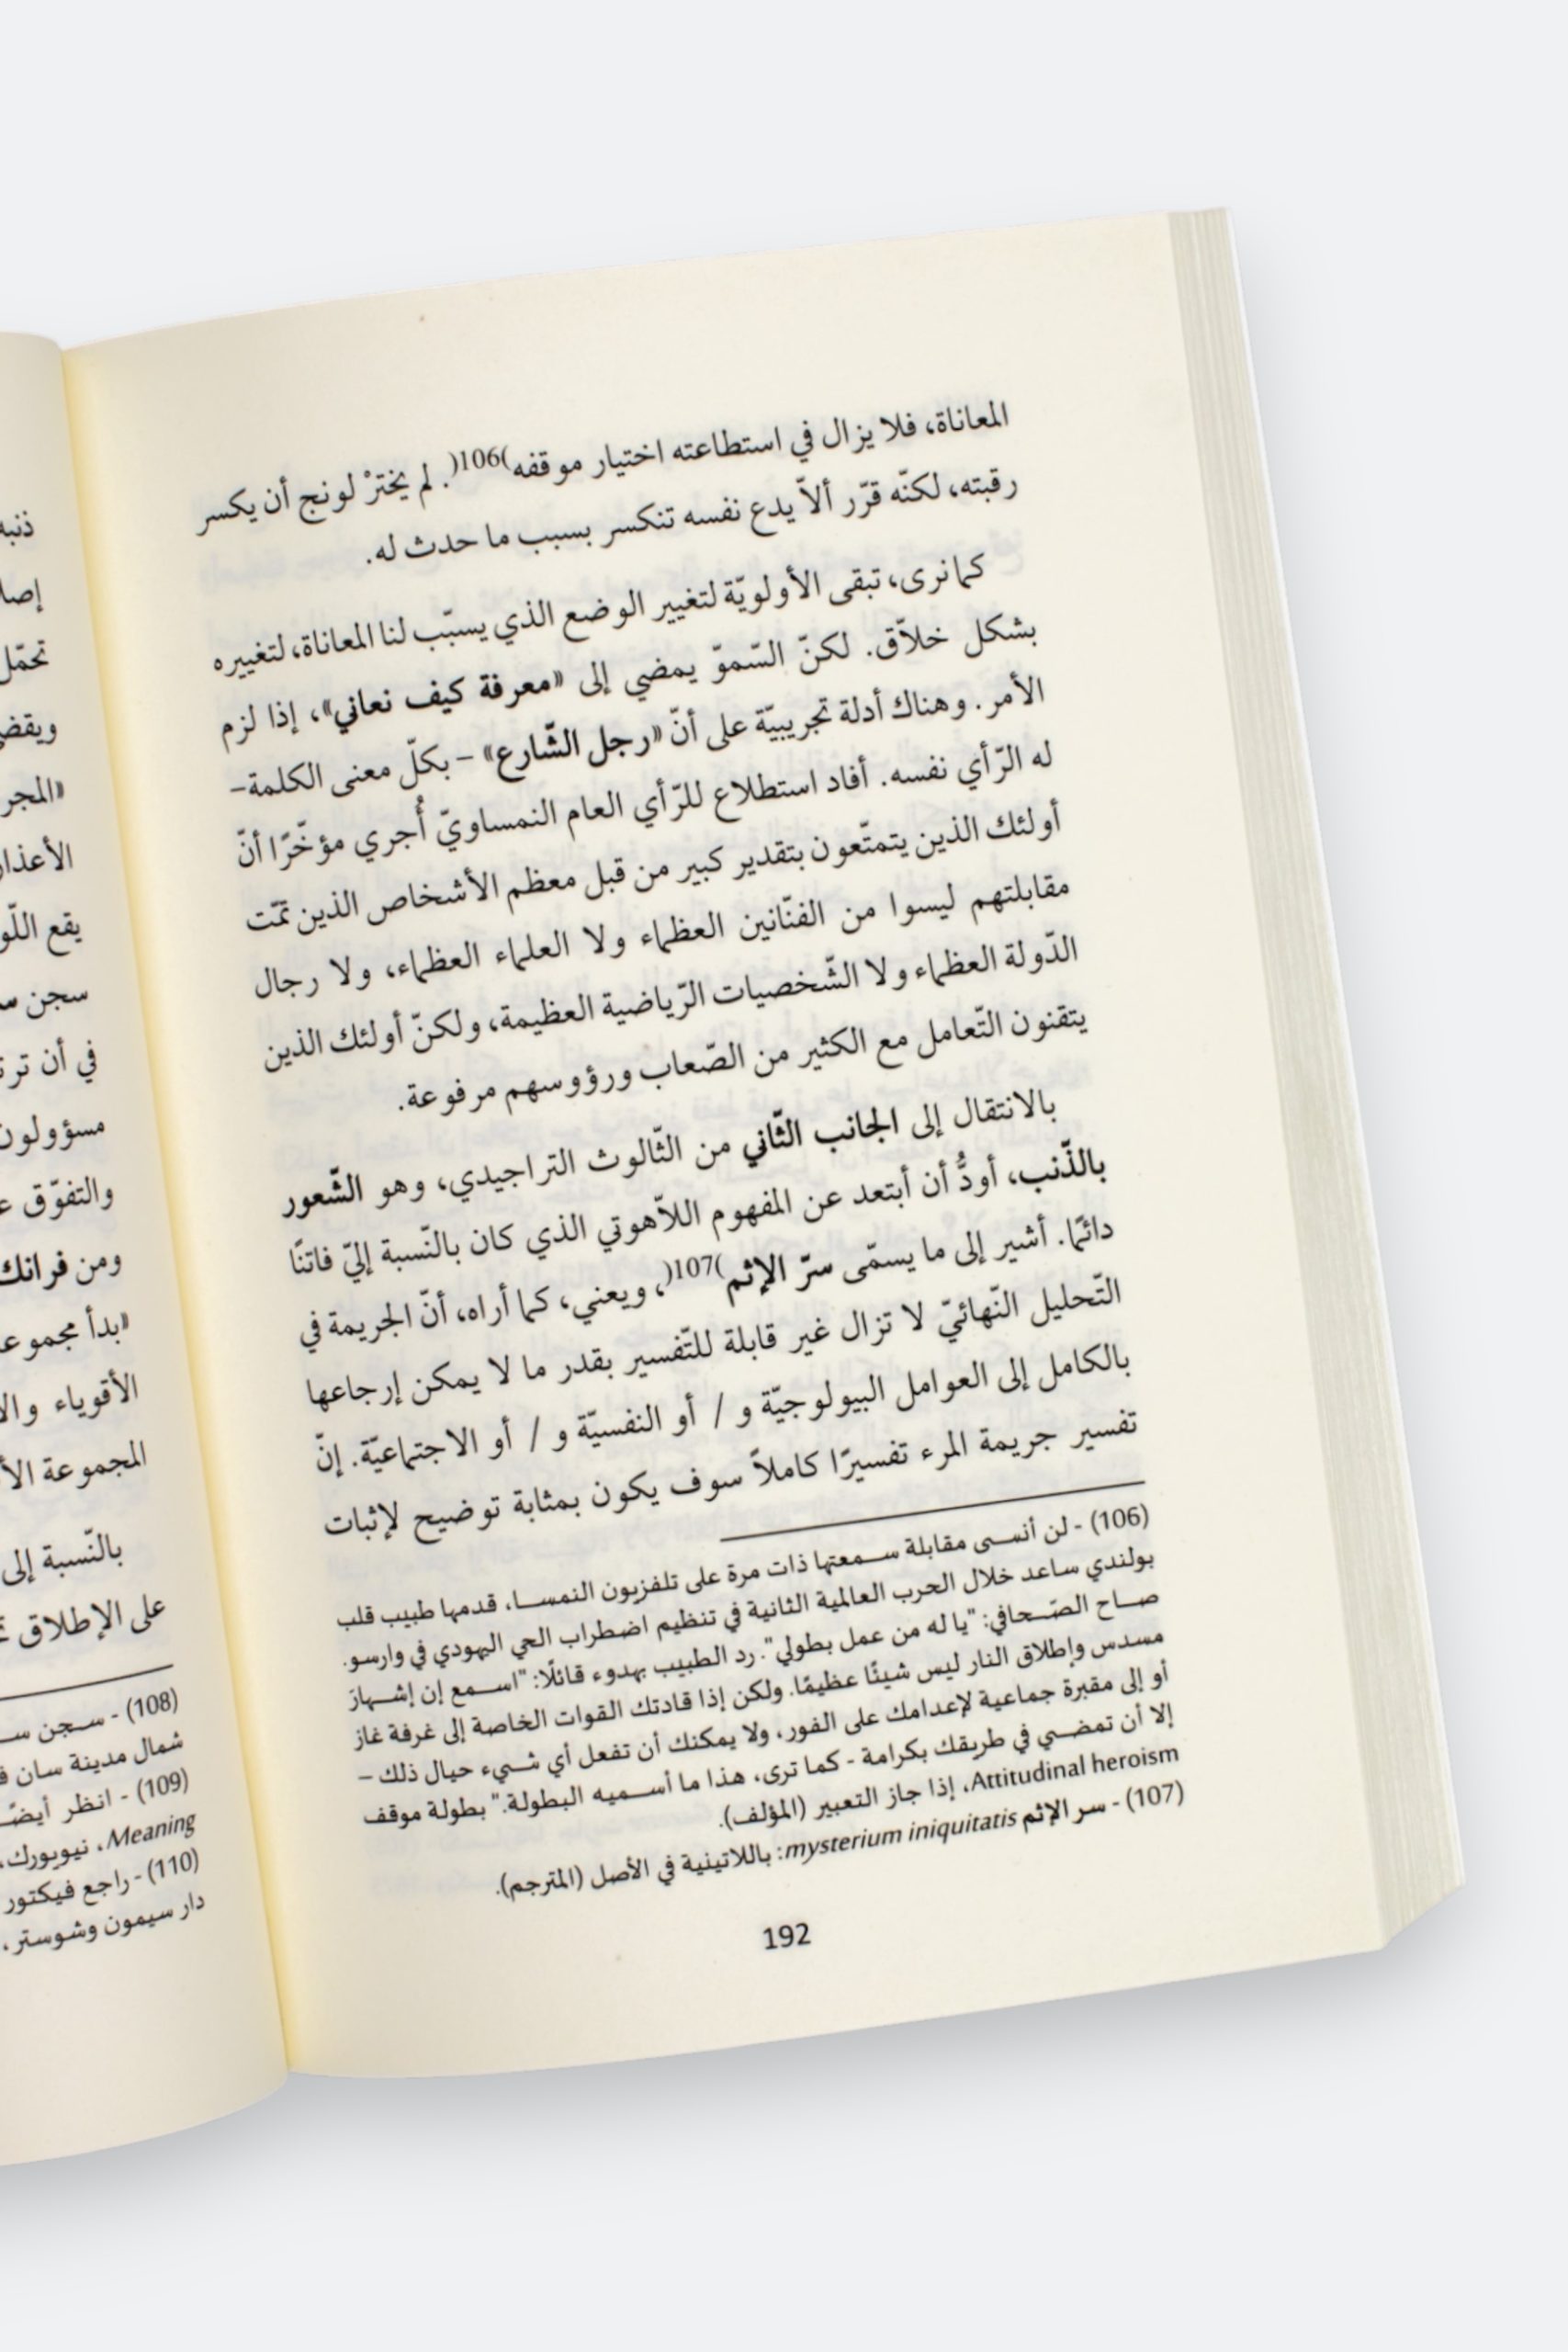 المعاناة، فلا يزال في استطاعته اختيار موقفه)106(. لم يخترْ لونج أن يكسر
رقبته، لكنّه قرّر ألاّ يدع نفسه تنكسر بسبب ما حدث له.
كما نرى، تبقى الأولويّة لتغيير الوضع الذي يسبّب لنا المعاناة، لتغييره
بشكل خلاّق. لكنّ السّموّ يمضي إلى «معرفة كيف نعاني»، إذا لزم
الأمر. وهناك أدلة تجريبيّة على أنّ «رجل الشّارع» – بكلّ معنى الكلمة–
له الرّأي نفسه. أفاد استطلاع للرّأي العام النمساويّ أُجري مؤخّرًا أنّ
أولئك الذين يتمتّعون بتقدير كبير من قبل معظم الأشخاص الذين تمّت
مقابلتهم ليسوا من الفنّانين العظماء ولا العلماء العظماء، ولا رجال
الدّولة العظماء ولا الشّخصيات الرّياضية العظيمة، ولكنّ أولئك الذين
يتقنون التّعامل مع الكثير من الصّعاب ورؤوسهم مرفوعة.
بالانتقال إلى الجانب الثّاني من الثّالوث التراجيدي، وهو الشّعور
بالذّنب، أودُّ أن أبتعد عن المفهوم اللاّهوتي الذي كان بالنّسبة إليّ فاتنًا
دائمًا. أشير إلى ما يسمّى سرّ الإثم)107(، ويعني، كما أراه، أنّ الجريمة في
التّحليل النّهائيّ لا تزال غير قابلة للتّفسير بقدر ما لا يمكن إرجاعها
بالكامل إلى العوامل البيولوجيّة و / أو النفسيّة و / أو الاجتماعيّة. إنّ
تفسير جريمة المرء تفسيرًا كاملاً سوف يكون بمثابة توضيح لإثبات
(106) - لن أنسى مقابلة سمعتها ذات مرة على تلفزيون النمسا، قدمها طبيب قلب
بولندي ساعد خلال الحرب العالمية الثانية في تنظيم اضطراب الحي اليهودي في وارسو.
صاح الصّحافي: "يا له من عمل بطولي". رد الطبيب بهدوء قائلًا: "اسمع إن إشهارَ
مسدس وإطلاق النار ليس شيئًا عظيمًا. ولكن إذا قادتك القوات الخاصة إلى غرفة غاز
أو إلى مقبرة جماعية لإعدامك على الفور، ولا يمكنك أن تفعل أي شيء حيال ذلك –
إلا أن تمضي في طريقك بكرامة - كما ترى، هذا ما أسميه البطولة." بطولة موقف
Attitudinal heroism، إذا جاز التعبير (المؤلف).
(107) - سر الإثم mysterium iniquitatis: باللاتينية في الأصل (المترجم).
192
ذنبه
إصا
تحمّل
ويقضي
«المجر
الأعذار
يقع اللّو
سجن س
في أن تر
مسؤولون
والتفوّق ع
ومن فرانك
«بدأ مجموع
الأقوياء والا
المجموعة الأ
بالنّسبة إلى
على الإطلاق
(108) - سجن س
شمال مدينة سان ف
(109) - انظر أيضً
Meaning، نيويورك،
(110) - راجع فيكتور
دار سيمون وشوستر،